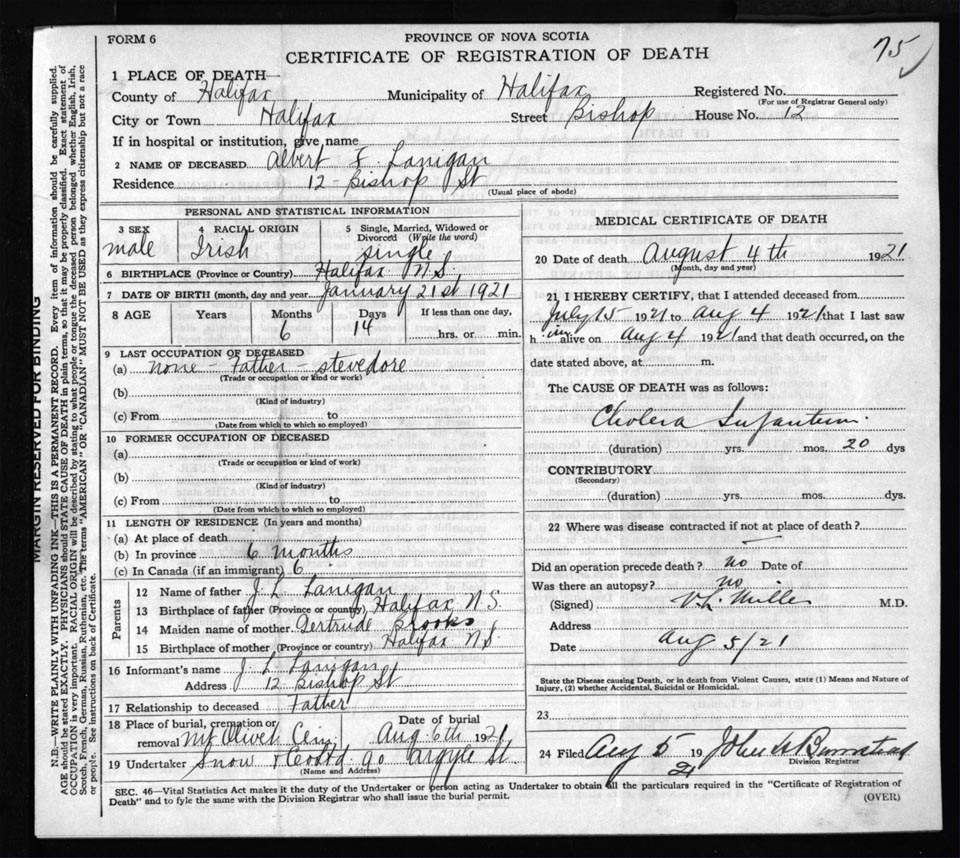 FORM 6
PROVINCE OF NOVA SCOTIA
75
CERTIFICATE OF REGISTRATION OF DEATH
1 PLACE OF DEATH—
County of Halifax Municipality of Halifax Registered No.
(For use of Registrar General only)
City or Town Halifax Street Bishop House No. 12
If in hospital or institution, give name
2 NAME OF DECEASED Albert F. Lanigan
Residence 12 - Bishop St
(Usual place of abode)
PERSONAL AND STATISTICAL INFORMATION
3 SEX 4 RACIAL ORIGIN 5 Single, Married, Widowed or Divorced (Write the word)
male Irish single
6 BIRTHPLACE (Province or Country) Halifax N.S.
7 DATE OF BIRTH (month, day and year) January 21st 1921
8 AGE Years Months Days If less than one day,
6 14 hrs. or min.
9 LAST OCCUPATION OF DECEASED
(a) none - Father - stevedore
(Trade or occupation or kind of work)
(b)
(Kind of industry)
(c) From to
(Date from which to which so employed)
10 FORMER OCCUPATION OF DECEASED
(a)
(Trade or occupation or kind of work)
(b)
(Kind of industry)
(c) From to
(Date from which to which so employed)
11 LENGTH OF RESIDENCE (In years and months)
(a) At place of death
(b) In province 6 months
(c) In Canada (if an immigrant) 6
Parents
12 Name of father J. L. Lanigan
13 Birthplace of father (Province or country) Halifax N.S.
14 Maiden name of mother Gertrude Brooks
15 Birthplace of mother (Province or country) Halifax N.S.
16 Informant's name J. L. Lanigan
Address 12 Bishop St
17 Relationship to deceased Father
18 Place of burial, cremation or removal Mt Olivet Cem. Date of burial Aug 6th 1921
19 Undertaker Snow & Co Ltd. 90 Argyle St.
(Name and Address)
MEDICAL CERTIFICATE OF DEATH
20 Date of death August 4th 1921
(Month, day and year)
21 I HEREBY CERTIFY, that I attended deceased from
July 15 1921 to Aug 4 1921 that I last saw
h im alive on Aug 4 1921 and that death occurred, on the
date stated above, at m.
The CAUSE OF DEATH was as follows:
Cholera Infantum
(duration) yrs. mos. 20 dys
CONTRIBUTORY
(Secondary)
(duration) yrs. mos. dys.
22 Where was disease contracted if not at place of death?
Did an operation precede death? no Date of
Was there an autopsy? no
(Signed) V. L. Miller M.D.
Address
Date Aug 5/21
State the Disease Causing Death, or in death from Violent Causes, state (1) Means and Nature of
Injury, (2) whether Accidental, Suicidal or Homicidal.
23
24 Filed Aug 5 1921 John
Division Registrar
SEC. 46—Vital Statistics Act makes it the duty of the Undertaker or person acting as Undertaker to obtain all the particulars required in the "Certificate of Registration of
Death" and to fyle the same with the Division Registrar who shall issue the burial permit.
(OVER)
MARGIN RESERVED FOR BINDING
N.B.—WRITE PLAINLY WITH UNFADING INK—THIS IS A PERMANENT RECORD. Every item of information should be carefully supplied.
AGE should be stated EXACTLY. PHYSICIANS should STATE CAUSE OF DEATH in plain terms, so that it may be properly classified. Exact statement of
OCCUPATION is very important. RACIAL ORIGIN will be described by stating to what people or tongue the deceased person belonged, whether English, Irish,
Scotch, French, German, Russian, Ruthenian, etc. The terms "AMERICAN" OR "CANADIAN" MUST NOT BE USED as they express citizenship but not a race
or people. See instructions on back of Certificate.